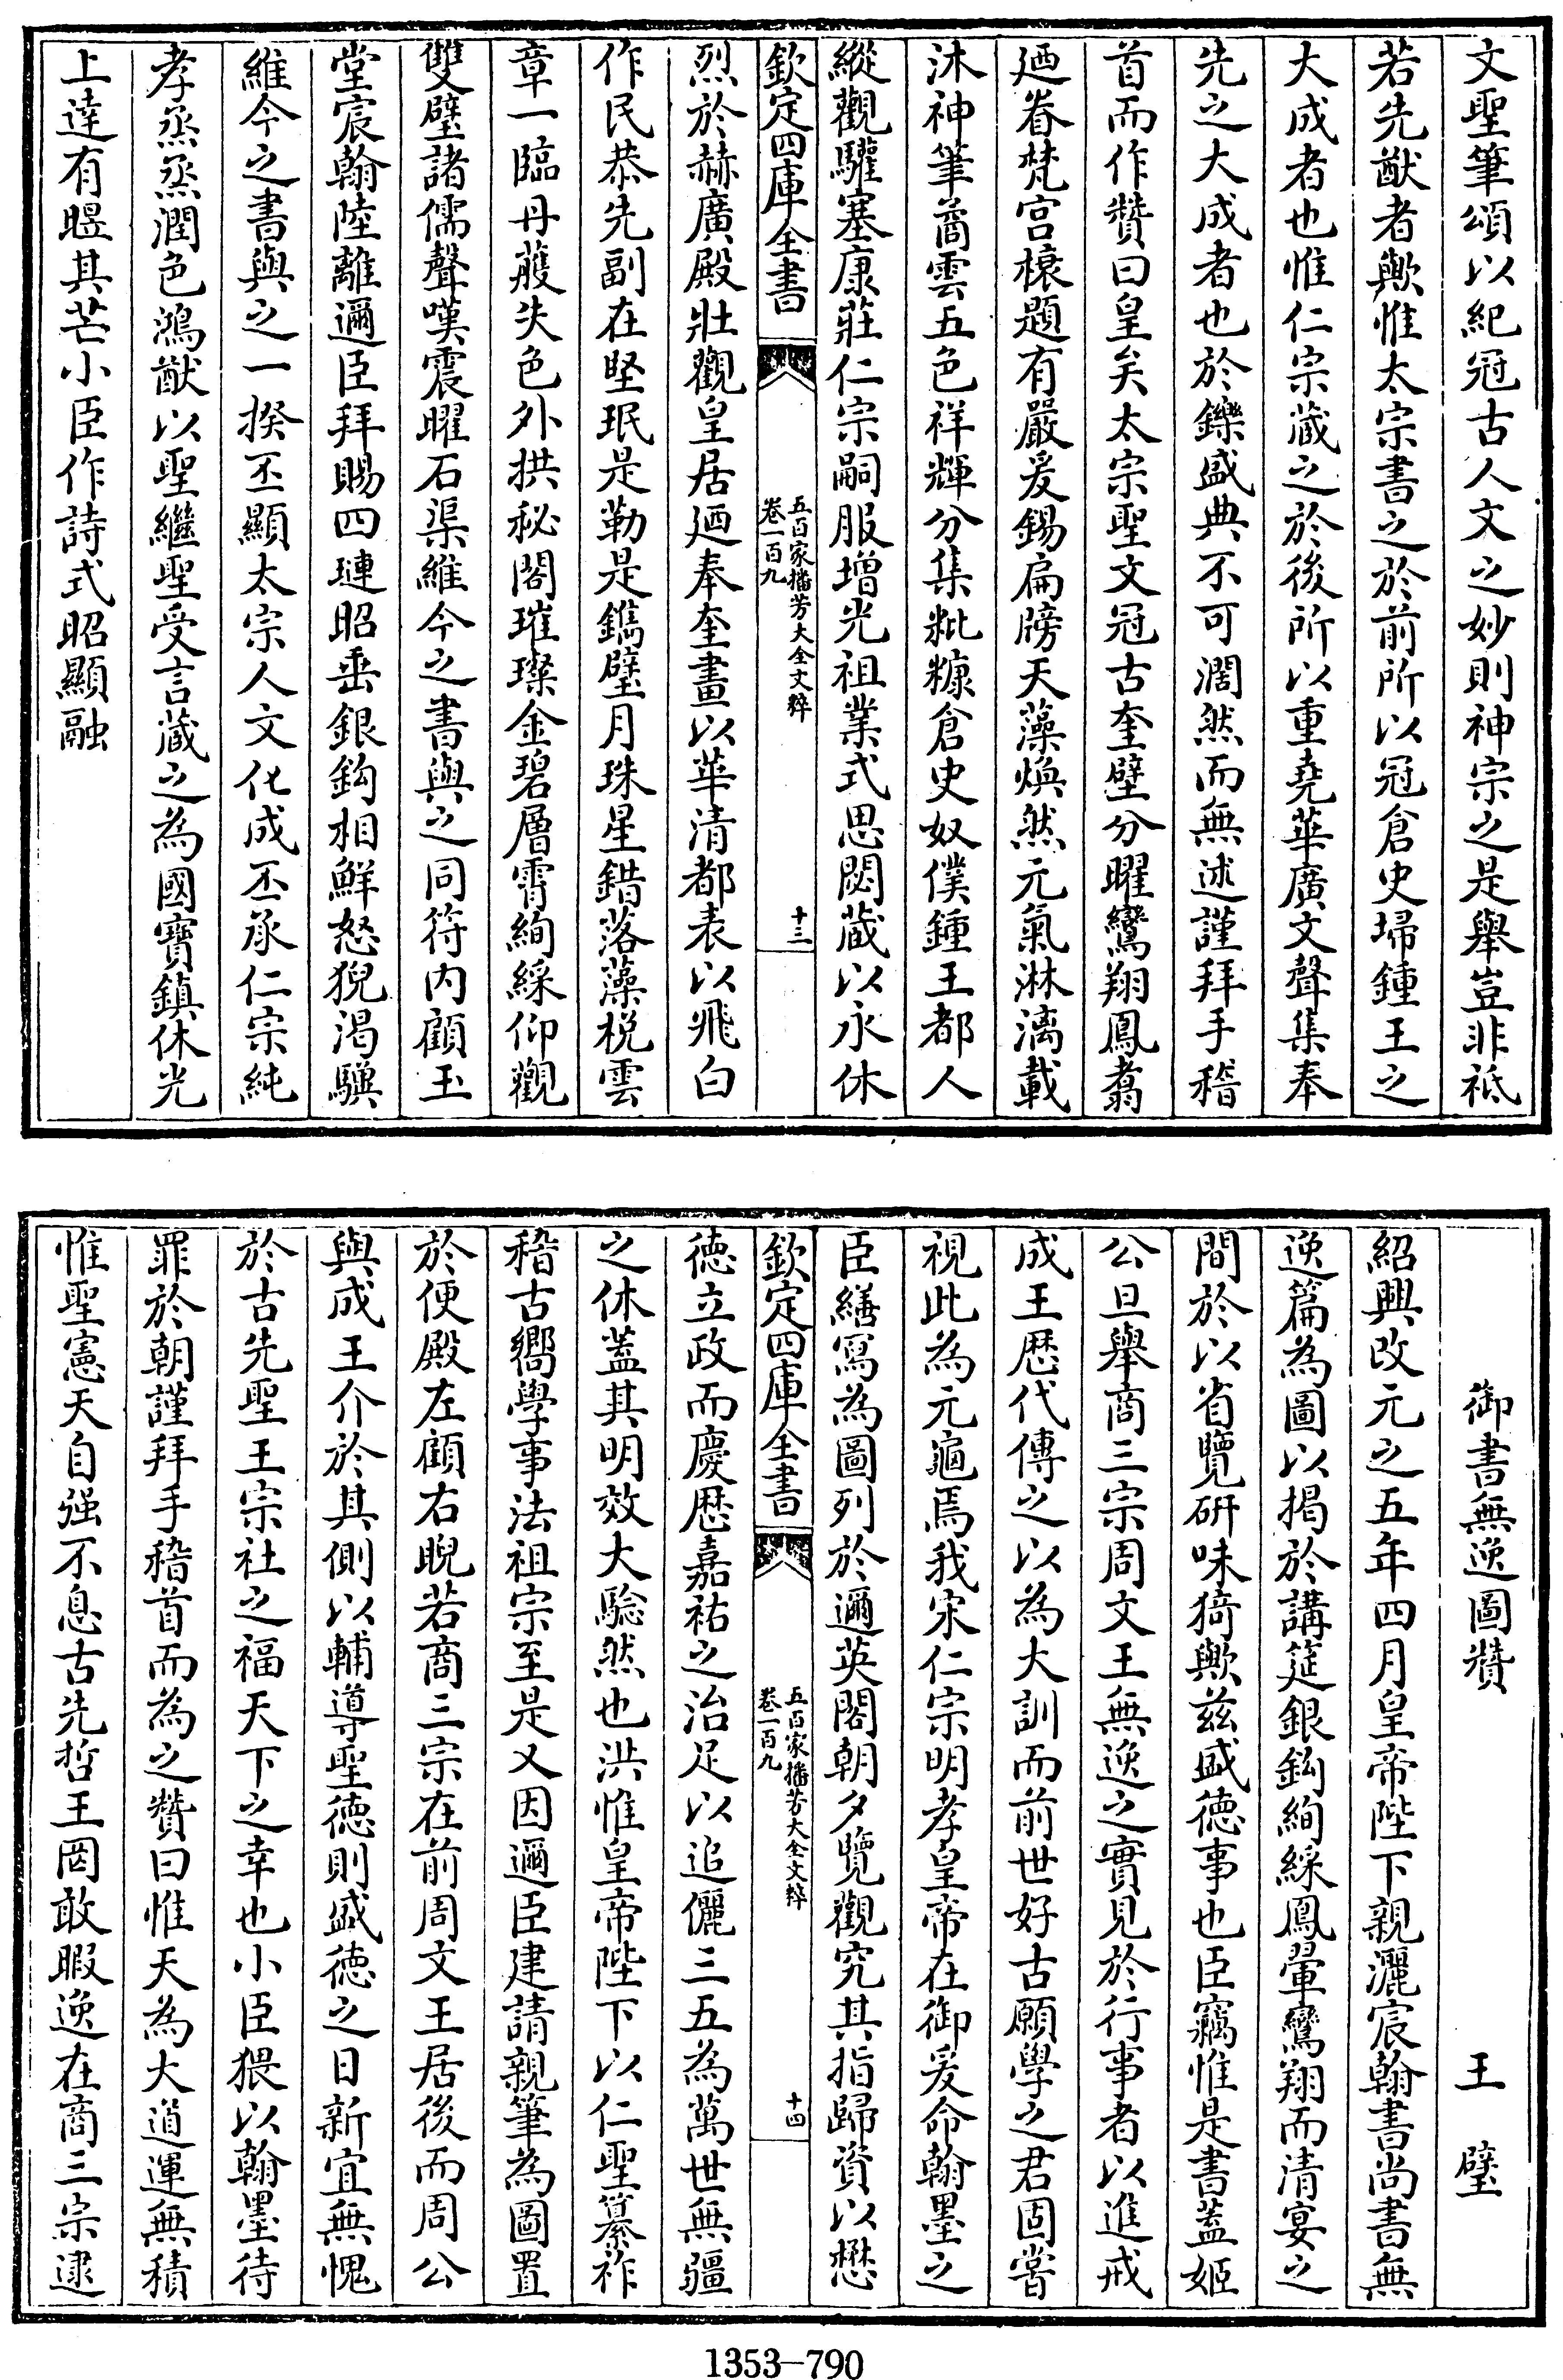 文聖筆頌以紀冠古人文之妙則神宗之是舉豈非祗
若先猷者歟惟太宗書之於前所以冠倉史埽鍾王之
大成者也惟仁宗蔵之於後所以重堯華廣文聲集奉
先之大成者也於鑠盛典不可濶然而無述謹拜手稽
首而作贊曰皇矣太宗聖文冠古奎璧分曜鸞翔鳳翥
廼眷梵宫榱題有嚴爰錫扁牓天藻煥然元氣淋漓載
沐神筆矞雲五色祥輝分集粃糠倉史奴僕鍾王都人
縱觀驩塞康莊仁宗嗣服增光祖業式思閟蔵以永休
欽定四庫全書
五百家播芳大全文粹
卷一百九
十三
烈於赫廣殿壯觀皇居廼奉奎畫以華清都表以飛白
作民恭先副在堅珉是勒是鐫璧月珠星錯落藻梲雲
章一臨丹雘失色外拱秘閣璀璨金碧層霄絢綵仰觀
雙璧諸儒聲嘆震曜石渠維今之書與之同符内顧玉
堂宸翰陸離邇臣拜賜四璉昭垂銀鈎相鮮怒猊渇驥
維今之書與之一揆丕顯太宗人文化成丕承仁宗純
孝烝烝潤色鴻猷以聖繼聖受言蔵之為國寳鎮休光
上達有暱其芒小臣作詩式昭顯融
御書無逸圖贊
王璧
紹興改元之五年四月皇帝陛下親灑宸翰書尚書無
逸篇為圖以掲於講筵銀鈎絢綵鳳翬鸞翔而清宴之
間於以省覽研味猗歟兹盛徳事也臣竊惟是書蓋姬
公旦舉商三宗周文王無逸之實見於行事者以進戒
成王厯代傳之以為大訓而前世好古願學之君固嘗
視此為元龜焉我宋仁宗明孝皇帝在御爰命翰墨之
臣繕寫為圖列於邇英閣朝夕覽觀究其指歸資以懋
欽定四庫全書
五百家播芳大全文粹
卷一百九
十四
徳立政而慶厯嘉祐之治足以追儷三五為萬世無疆
之休蓋其明效大驗然也洪惟皇帝陛下以仁聖纂祚
稽古嚮學事法祖宗至是又因邇臣建請親筆為圖置
於便殿左顧右睨若商三宗在前周文王居後而周公
與成王介於其側以輔導聖徳則盛徳之日新宜無愧
於古先聖王宗社之福天下之幸也小臣猥以翰墨待
罪於朝謹拜手稽首而為之贊曰惟天為大道運無積
惟聖憲天自强不息古先哲王罔敢暇逸在商三宗逮
1353-790